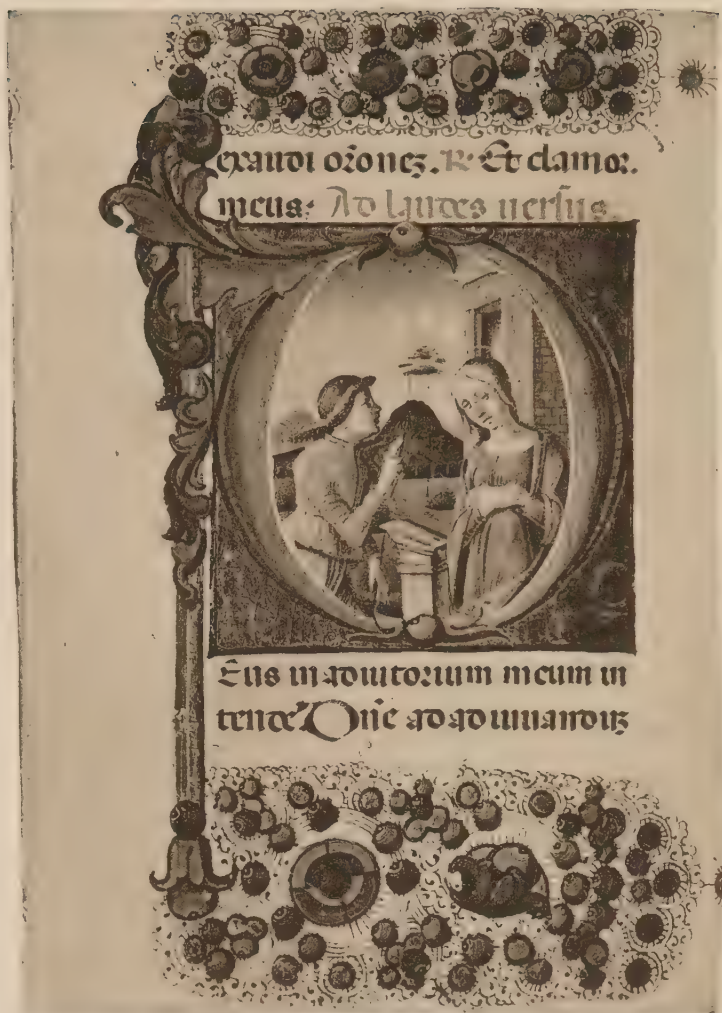 exaudi or̃oneʒ. R. Et clamor.
meus: Ad laudes uersus.
Eus in adiutorium meum in
tende. Dñe ad adiuuanduʒ